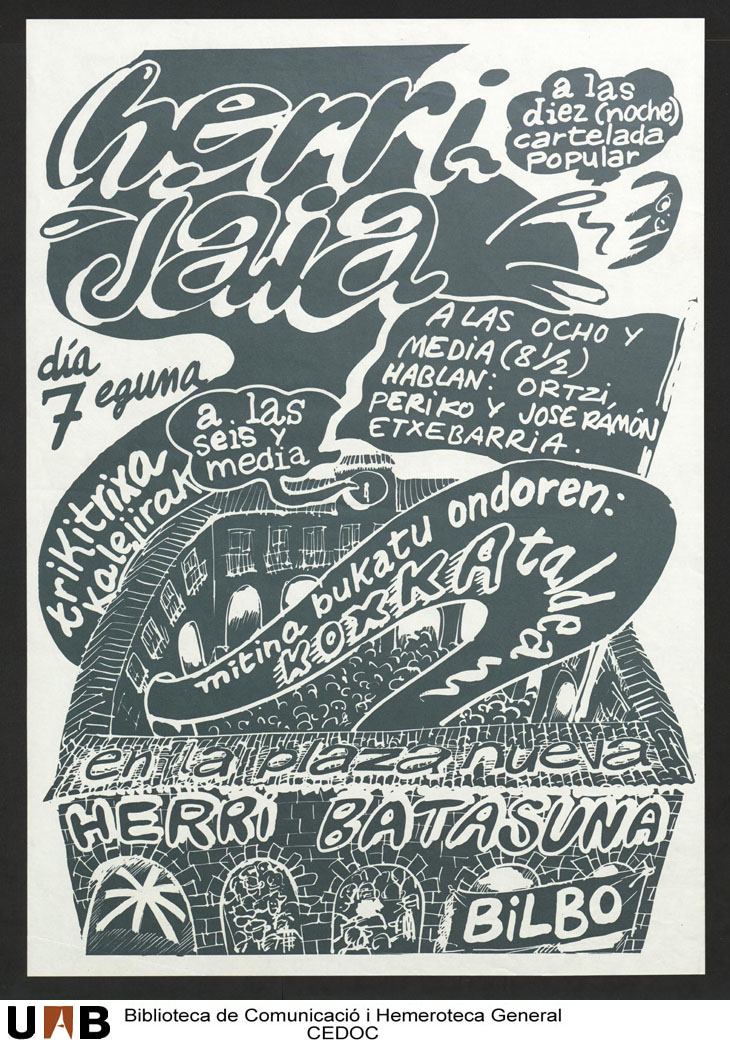 herri
jaia
a las
diez (noche)
cartelada
popular
día
7 eguna
A LAS OCHO Y
MEDIA (8 1/2)
HABLAN: ORTZI,
PERIKO Y JOSE RAMÓN
ETXEBARRIA.
a las
seis y
media
trikitrixa
kalejirak
mitina bukatu ondoren:
KOXKA taldea
en la plaza nueva
HERRI BATASUNA
BiLBO
UAB Biblioteca de Comunicació i Hemeroteca General
CEDOC